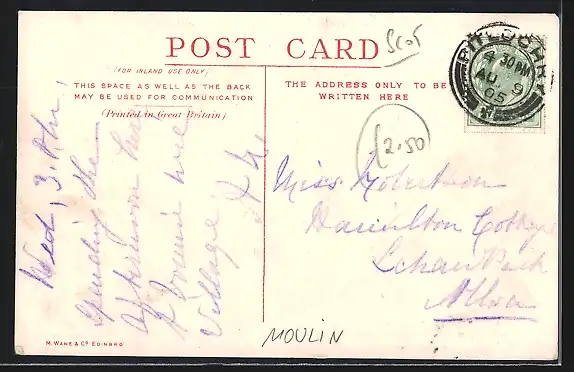 POST CARD
Scot
(FOR INLAND USE ONLY)
THIS SPACE AS WELL AS THE BACK
MAY BE USED FOR COMMUNICATION
(Printed in Great Britain)
THE ADDRESS ONLY TO BE
WRITTEN HERE
PITLOCHRY
30 PM
AU 9
05
2.50
Wed, 3.
Spending the
afternoon
village
Miss Robertson
Hamilton Cottage
Park
Alloa
M. WANE & Co EDINBRO
MOULIN